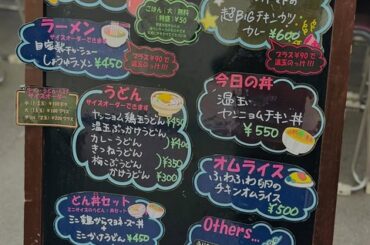 ごはん(大)無料
(特盛)¥50
超BIGチキンカツ
カレー ¥600
プラス¥90で
温玉のっけ!!!
ラーメン
サイズオーダーできます
自家製チャーシュー
しょうゆラーメン ¥450
プラス¥90で
温玉のっけ!!!
うどん
サイズオーダーできます
ヤンニョム鶏玉うどん ¥450
温玉ぶっかけうどん
カレーうどん ¥400
きつねうどん
梅こぶうどん ¥350
かけうどん ¥300
今日の丼
温玉
ヤンニョムチキン丼
¥550
オムライス
ふわふわ卵の
チキンオムライス
¥500
どん丼セット
ミニ鶏からマヨネーズ丼
+
ミニかけうどん ¥450
Others...